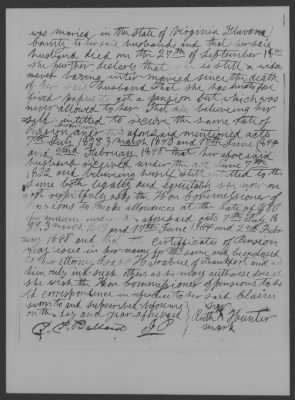 was maried in the State of Virginia Fluvana
County to her said husband and that her said
husband died on the 27th of September 1842
she further declares that she is still a widow
never having inter maried since the death
of her said husband that she has heretofore
fixed papers to get a pension but which was
never allowed to her that she believing her
self entitled to receive the same rate of
pension under the aforesaid mentioned acts
7th July 1838 3 march 1843 and 17th June 1844
and 2nd February 1848 that her aforesaid
husband received under the act June 7th
1832 and believing herself still entitled to the
same both legally and equitably she now on
most respectfully asks the Hon Commissioner of
Pensions to make allowance at the rate of
per annum under the aforesaid acts 7th July 18
3 march 1843 and 17th June 1844 and 2nd Febru
ary 1848 and that Certificates of Pension
may issue in her name for the same and be enclosed
to her attorney of Frankfort and
him only and such others as he may authorise does
she wish the Hon Commissioner of pensions to ho
ld correspondence in reference to her said Claim
sworn to and subscribed before me
on the day and year aforesaid
J P
her
Ruth X Hunter
mark